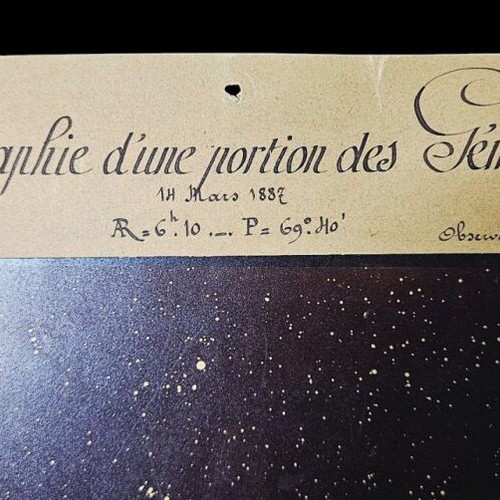 aphie d'une portion des Gém
14 Mars 1887
AR = 6h. 10 _._ P = 69°. 40'
Observ